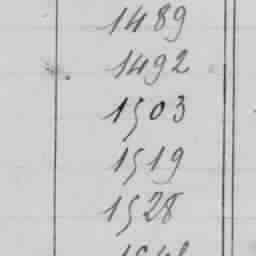 1489
1492
1503
1519
1528